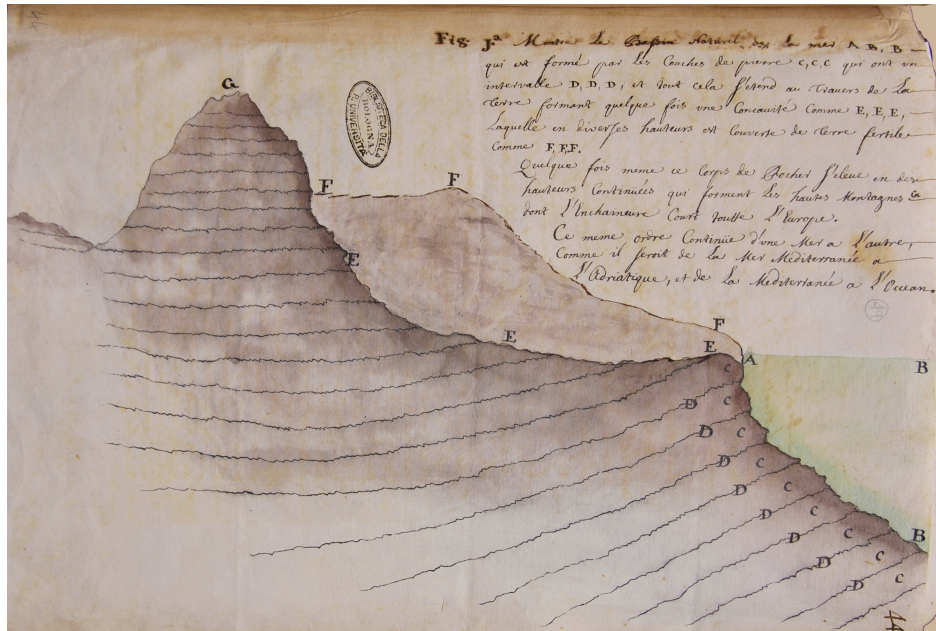 44
Fig. J.ª Montre Le Bassin Naturel de la mer A B, B
qui est formé par Les Couches de pierre C, C, C qui ont un
intervalle D, D, D, et tout cela s'etend au travers de La
Terre formant quelque fois une Concavité Comme E, E, E,
Laquelle en diverses hauteurs est Couverte de terre fertile
Comme F, F, F.
Quelque fois meme ce Corps de Rocher s'eleve en des
hauteurs Continuées qui forment Les hautes Montagnes G
dont L'Enchaineure Court toutte L'Europe.
Ce meme ordre Continüe d'une Mer a L'autre,
Comme il seroit de La Mer Mediterranée a
L'Adriatique, et de La Mediterranée a L'Ocean.
BIBLIOTECA DELLA
R. UNIVERSITÀ
BOLOGNA
G
F
F
E
E
F
E
A
B
C
D
C
D
C
D
C
D
C
D
C
D
C
B
D
C
D
C
44